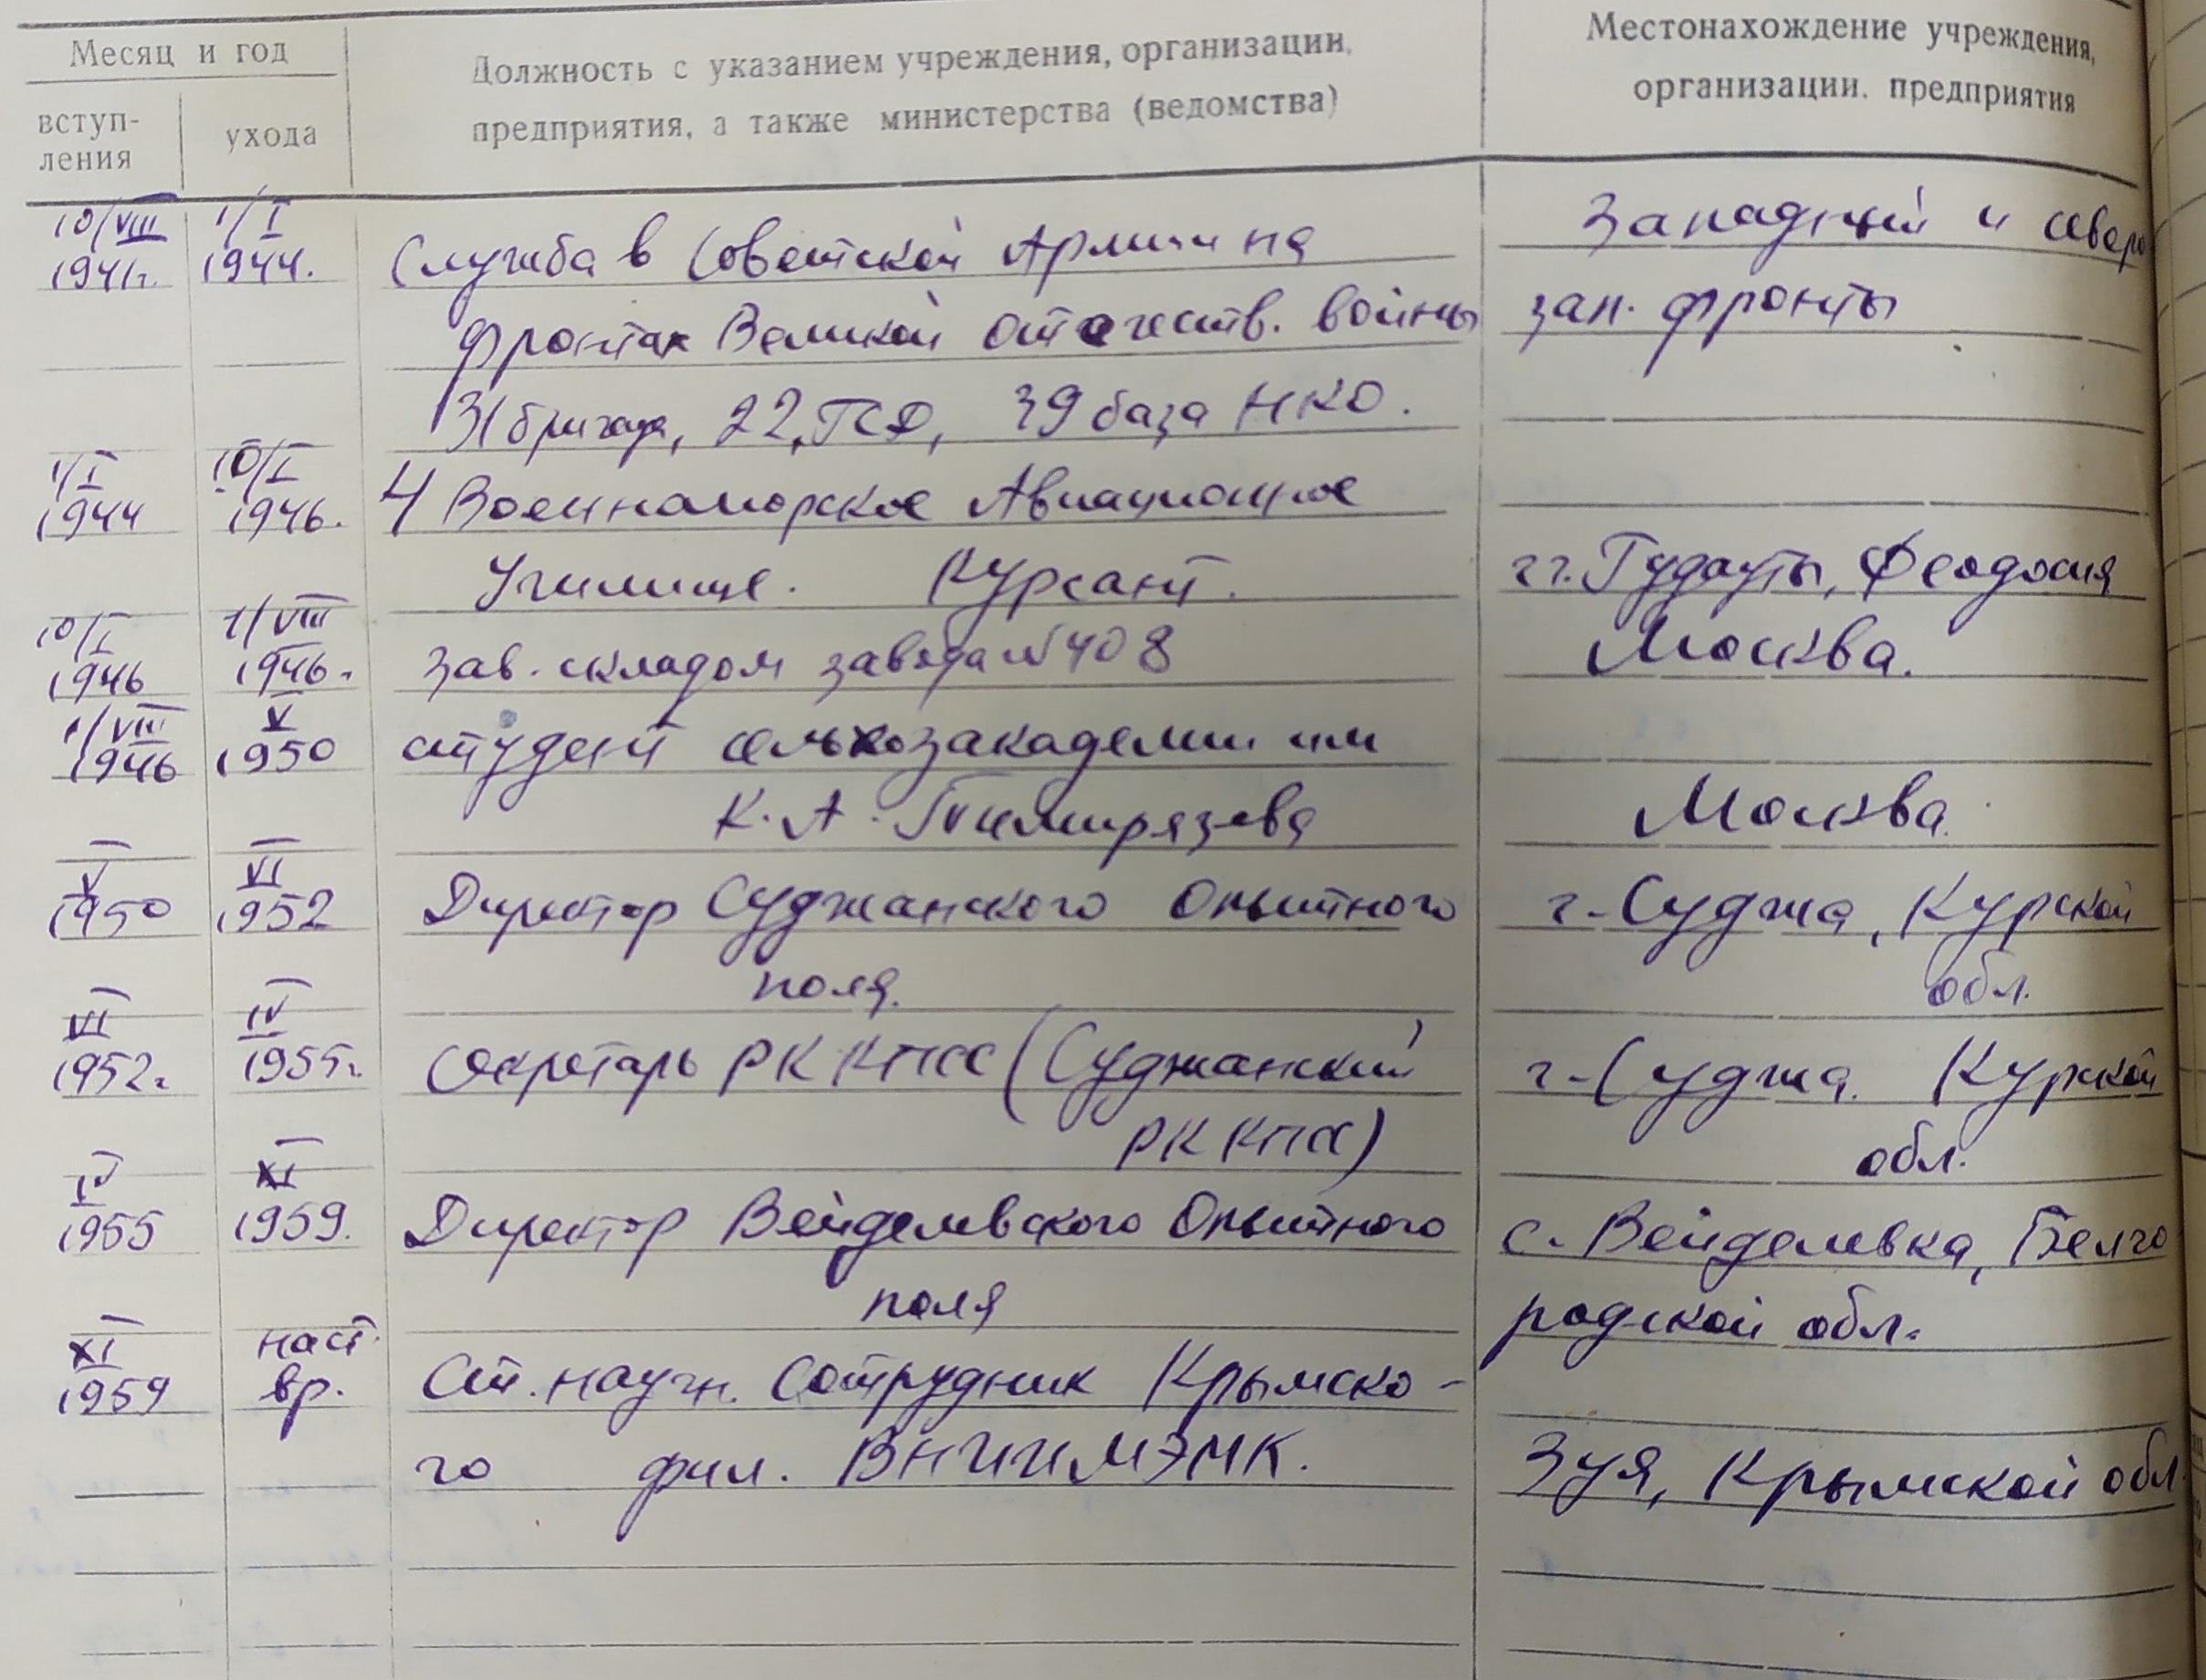 Месяц и год
Должность с указанием учреждения, организации,
предприятия, а также министерства (ведомства)
Местонахождение учреждения,
организации, предприятия
вступ-
ления
ухода
10/VIII 1/I
1941г. 1944. Служба в Советской Армии на Западный и северо
фронтах Великой отечеств. войны зап. фронты
31 бригада, 22, ГСД, 39 база НКО.
1/I 10/I
1944 1946. 4 Военноморское Авиационное
Училище. Курсант. гг. Гудауты, Феодосия
10/I 1/VIII
1946 1946. зав. складом завода №408 Москва.
1/VIII V
1946 1950 студент сельхозакадемии им
К. А. Тимирязева Москва.
V VI
1950 1952 Директор Суджанского Опытного г. Суджа, Курской
поля. обл.
VI IV
1952г. 1955г. Секретарь РК КПСС (Суджанский г. Суджа. Курской
РК КПСС) обл.
IV XI
1955 1959. Директор Вейделевского Опытного с. Вейделевка, Белго
поля родской обл.
XI наст.
1959 вр. Ст. научн. сотрудник Крымско-
го фил. ВНИИМЭМК. Зуя, Крымской обл